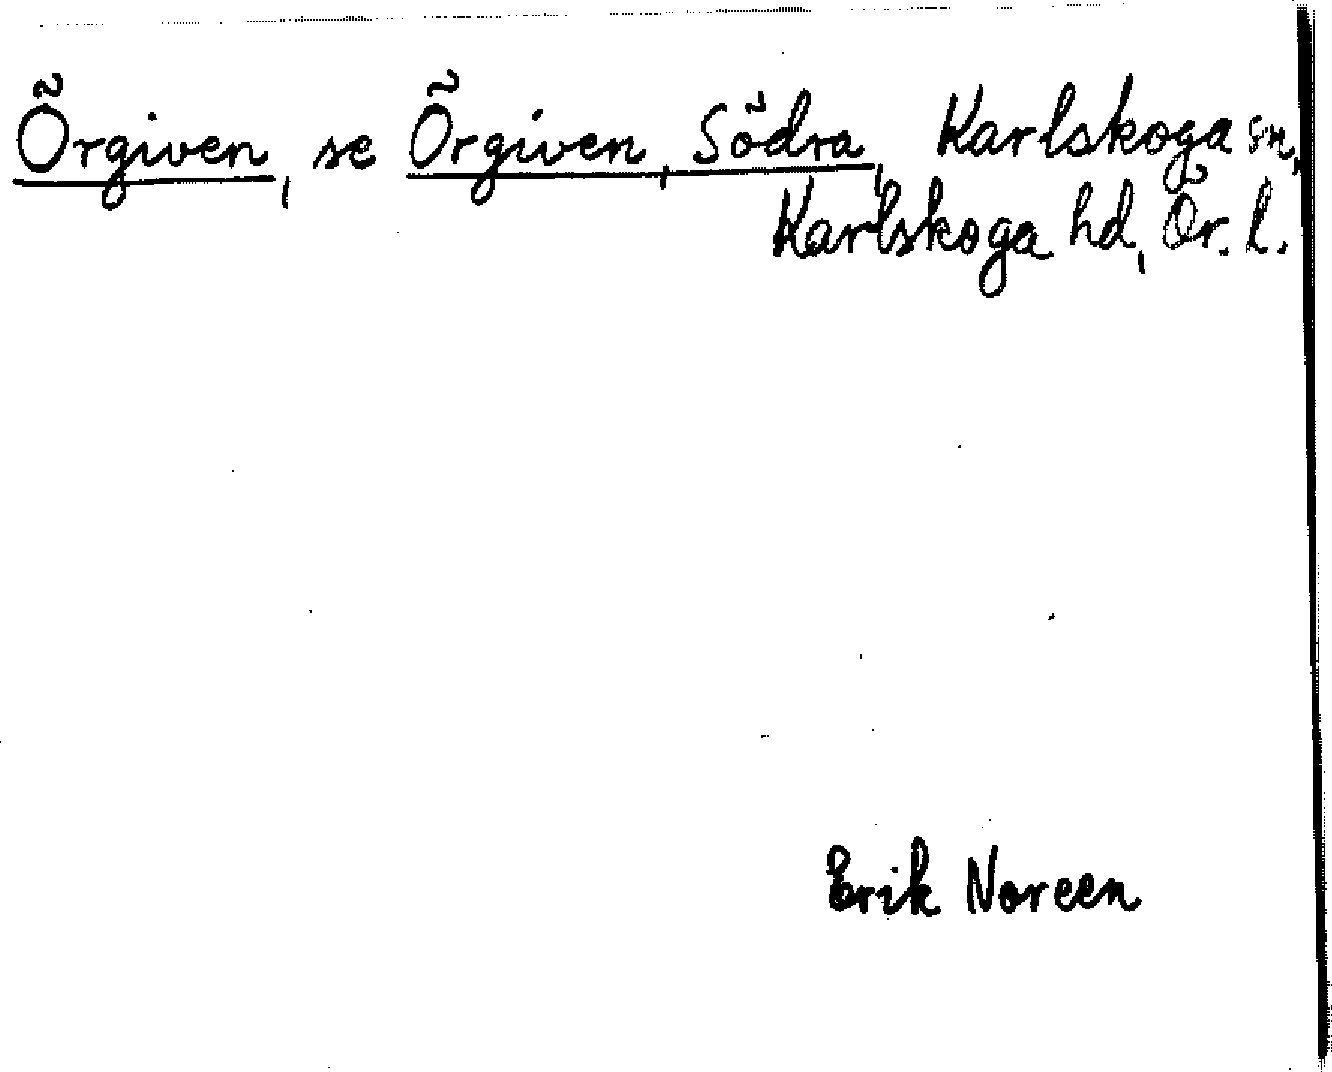 Örgiven, se Örgiven, Södra, Karlskoga sn,
Karlskoga hd, Ör. l.
Erik Noreen